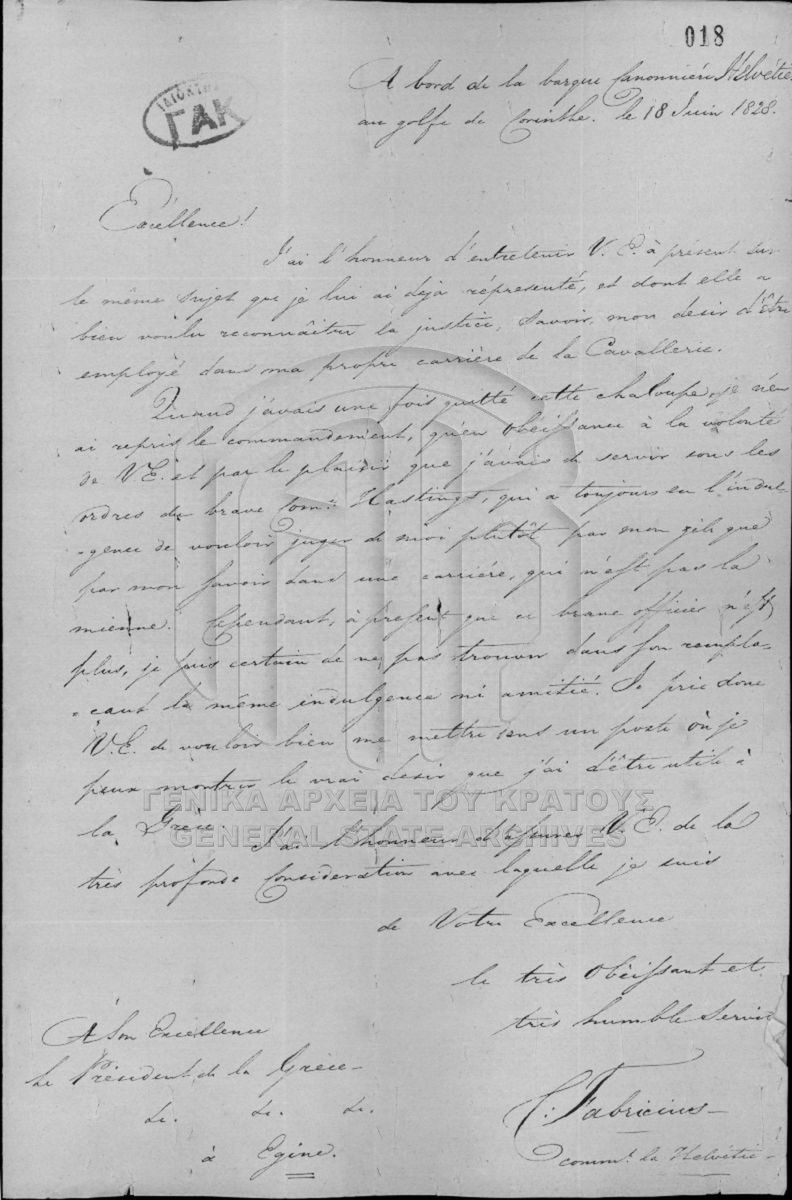 018
ΓΑΚ
A bord de la barque Canonnière Helvétie
au golfe de Corinthe. le 18 Juin 1828.
Excellence!
J'ai l'honneur d'entretenir V. E. à présent sur
le même sujet que je lui ai déja répresenté, et dont elle a
bien voulu reconnaître la justice, savoir, mon desir d'être
employé dans ma propre carrière de la Cavallerie.
Quand j'avais une fois quitté cette chaloupe, je n'en
ai repris le commandement, qu'en obéissance à la volonté
de V.E. et par le plaisir que j'avais de servir sous les
ordres du brave Comr. Hastings, qui a toujours eu l'indul-
-gence de vouloir juger de moi plutôt par mon zèle que
par mon savoir dans une carrière, qui n'est pas la
mienne. Cependant, à présent que ce brave officier n'est
plus, je suis certain de ne pas trouver dans son rempla-
-cant la même indulgence ni amitié. Je prie donc
V.E. de vouloir bien me mettre dans un poste où je
peux montrer le vrai desir que j'ai d'être utile à
la Grèce. J'ai l'honneur d'assurer V. E. de la
très profonde Consideration avec laquelle je suis
de Votre Excellence
le très obéissant et
très humble Servit
A Son Excellence
Le Président de la Grèce
&c. &c. &c.
à Egine.
C: Fabricius
commt. la Helvétie
ΓΕΝΙΚΑ ΑΡΧΕΙΑ ΤΟΥ ΚΡΑΤΟΥΣ
GENERAL STATE ARCHIVES